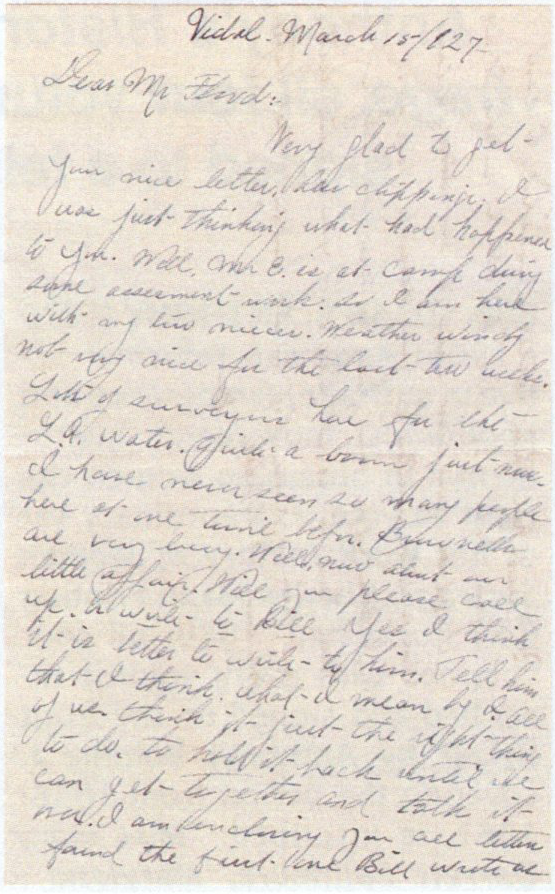 Vidal. March 15/1927
Dear Mr Floyd:
Very glad to get
your nice letter, clippings. I
was just thinking what had happened
to you. Well, Mr E. is at Camp doing
some assesment work. So I am here
with my two nieces. Weather windy
not very nice for the last two weeks.
Lots of surveyors here for the
L.A. Water. Quite a boom just now.
I have never seen so many people
here at one time before. Brownells
are very busy. Well, now about our
little affair. Will you please call
up. or write to Bill Yes I think
it is better to write to him. Tell him
that I think. what I mean by I all
of us. think it just the right thing
to do. to hold it back until we
can get together and talk it
over. I am enclosing you all letters
found the first one Bill wrote us